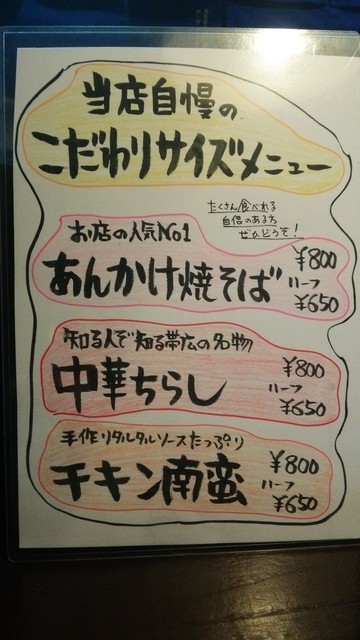 当店自慢の
こだわりサイズメニュー
たくさん食べれる
自信のある方
ぜひどうぞ!
お店の人気No1
あんかけ焼そば
¥800
ハーフ
¥650
知る人ぞ知る帯広の名物
中華ちらし
¥800
ハーフ
¥650
手作りタルタルソースたっぷり
チキン南蛮
¥800
ハーフ
¥650